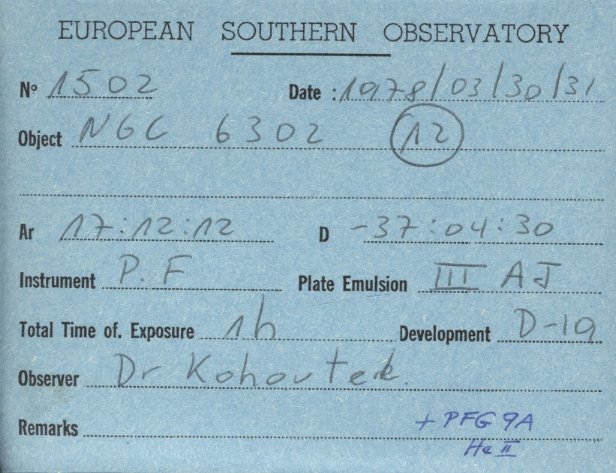 EUROPEAN SOUTHERN OBSERVATORY
Nº 1502 Date : 1978/03/30/31
Object NGC 6302 12
Ar 17:12:12 D -37:04:30
Instrument P.F Plate Emulsion III AJ
Total Time of. Exposure 1h Development D-19
Observer Dr Kohoutek.
Remarks + PFG 9A
He II